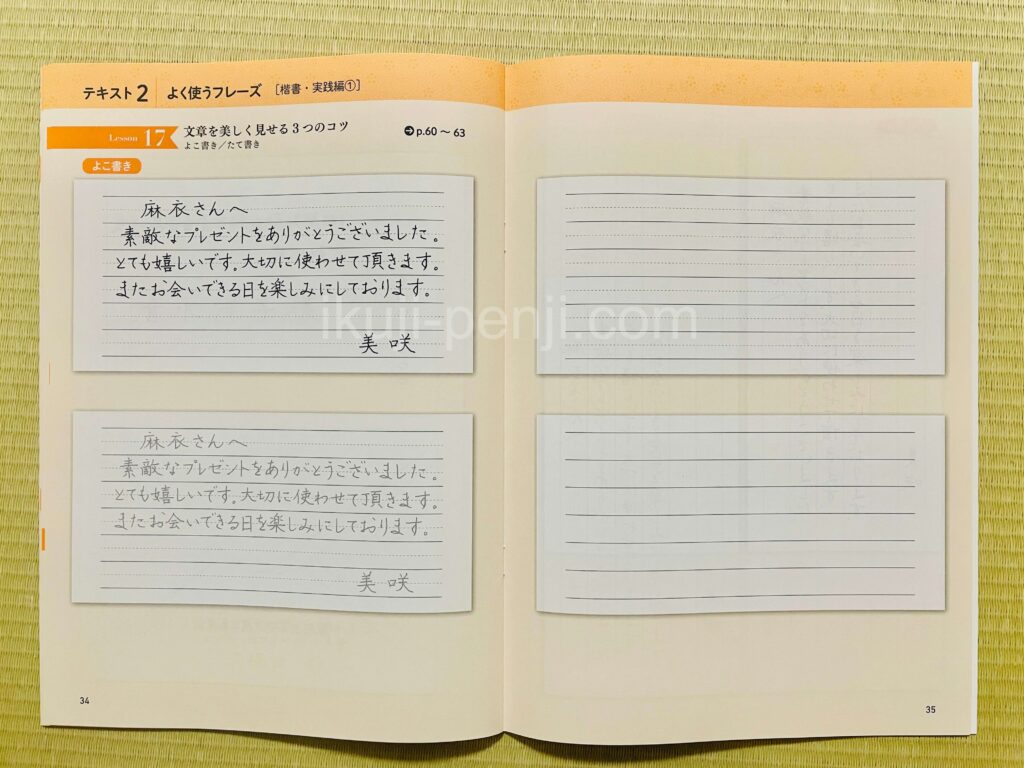 テキスト2 よく使うフレーズ [楷書・実践編①]
Lesson 17 文章を美しく見せる3つのコツ
よこ書き/たて書き
➔p.60〜63
よこ書き
麻衣さんへ
素敵なプレゼントをありがとうございました。
とても嬉しいです。大切に使わせて頂きます。
またお会いできる日を楽しみにしております。
美咲
麻衣さんへ
素敵なプレゼントをありがとうございました。
とても嬉しいです。大切に使わせて頂きます。
またお会いできる日を楽しみにしております。
美咲
34
35
ikuji-penji.com